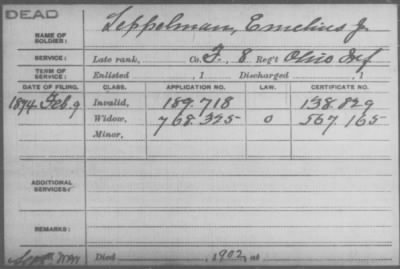 DEAD
NAME OF SOLDIER: Leppelman, Emelius J.
SERVICE: Late rank, Co. F. 8 Reg't Ohio Inf
TERM OF SERVICE: Enlisted , 1 Discharged , 1
DATE OF FILING. CLASS. APPLICATION NO. LAW. CERTIFICATE NO.
1874 Feb. 9 Invalid, 189.718 138.829
Widow, 768.325 O 567.165
Minor,
ADDITIONAL SERVICES:
REMARKS:
Died , 1902, at